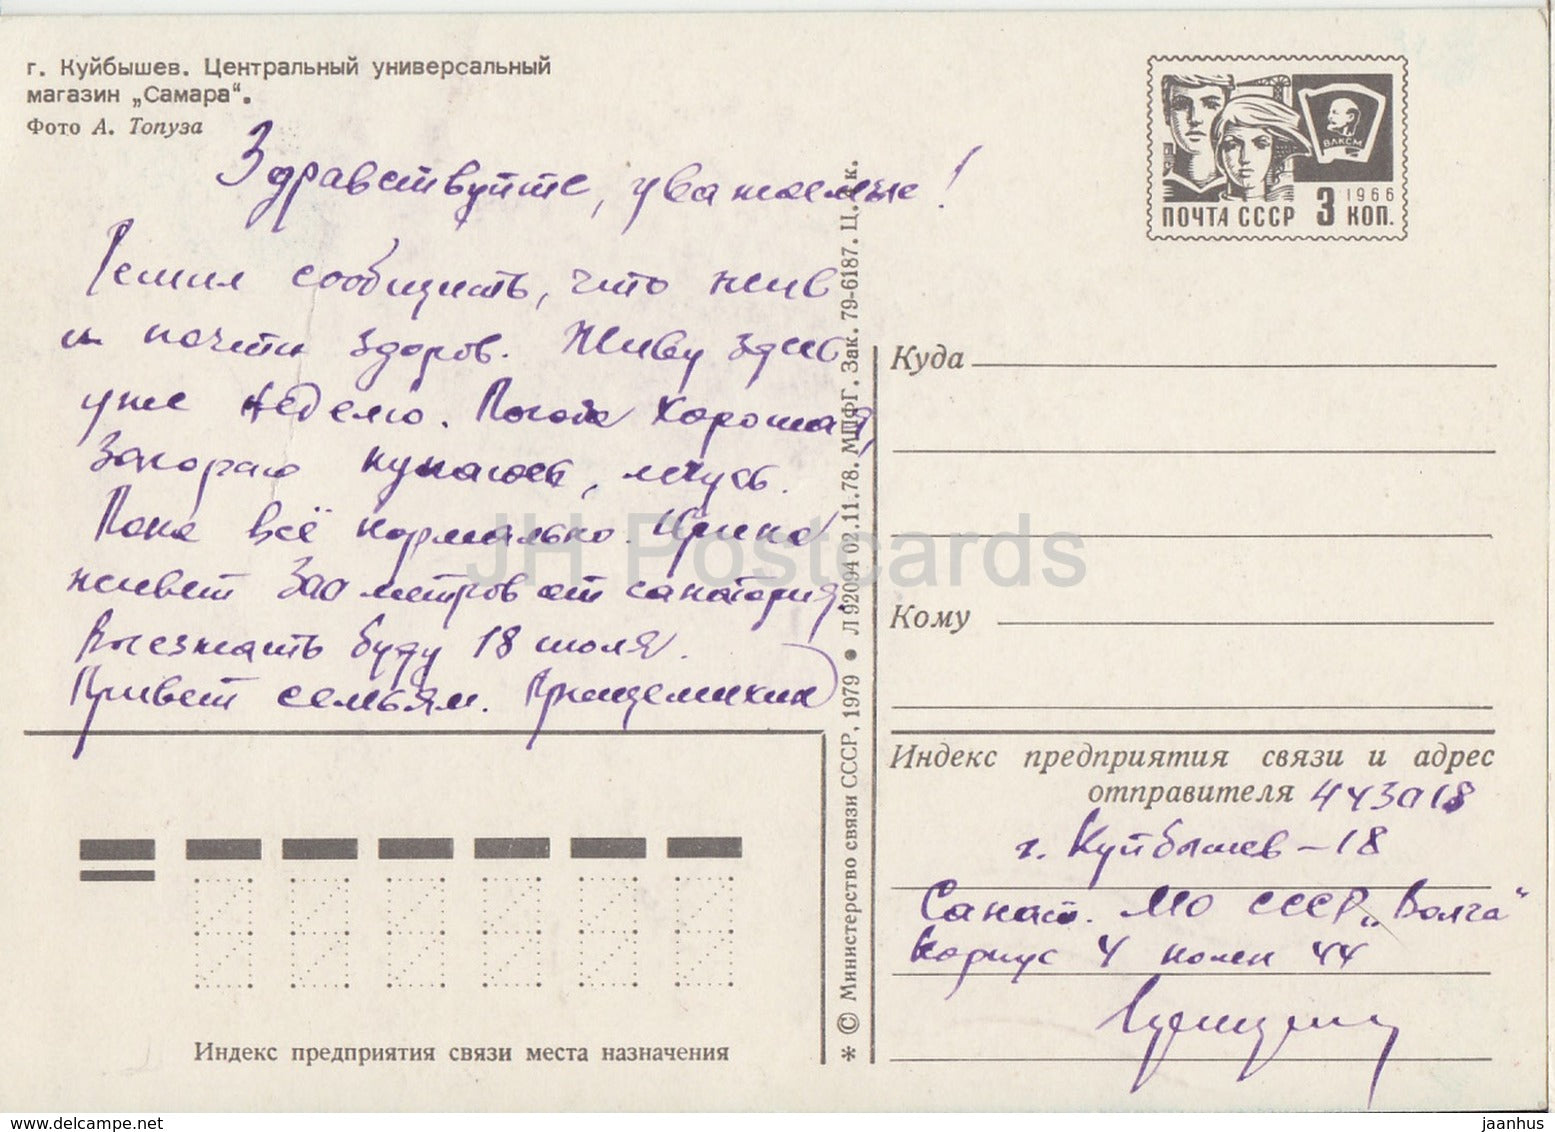 г. Куйбышев. Центральный универсальный
магазин „Самара“.
Фото А. Топуза
Здравствуйте, уважаемые!
Решил сообщить, что жив
и почти здоров. Живу здесь
уже неделю. Погода хорошая,
Загораю купаюсь, лечусь.
Пока всё нормально. Ирина
живет 300 метров от санатория.
Выезжать буду 18 июля.
Привет семьям.
ПОЧТА СССР 3 КОП.
1966
ВЛКСМ
Куда
Кому
Индекс предприятия связи и адрес
отправителя 443018
г. Куйбышев – 18
Санат. МО СССР „Волга“
Корпус 4 44
Индекс предприятия связи места назначения
* © Министерство связи СССР, 1979 • Л 92094 02.11.78. МПФГ. Зак. 79-6187. Ц. 4 к.
JH Postcards
www.delcampe.net
jaanhus